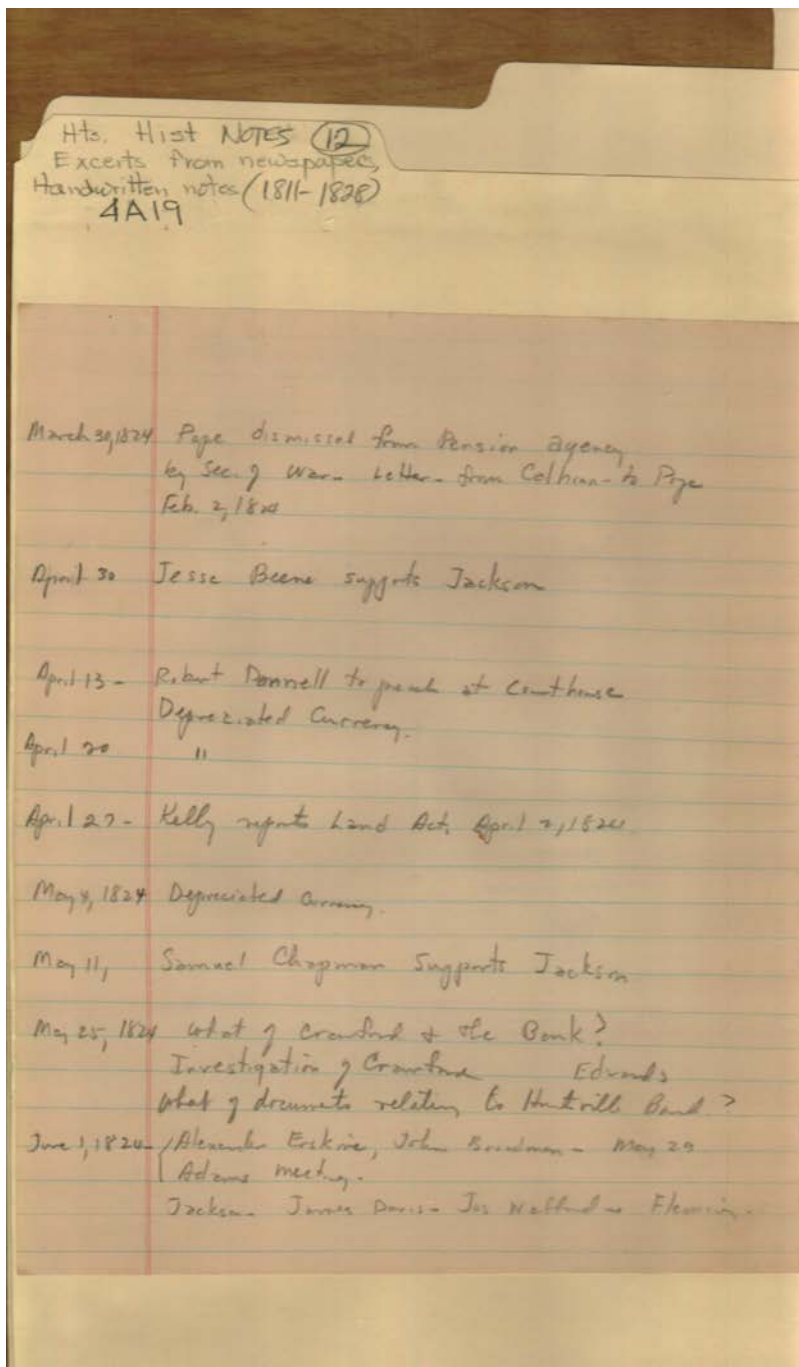 Hts. Hist NOTES (12)
Excerts from newspapers,
Handwritten notes (1811-1828)
4A19
March 30, 1824 Pope dismissed from Pension agency
by Sec. of War - Letter - from Calhoun - to Pope
Feb. 2, 1824
April 30 Jesse Beene supports Jackson
April 13 - Robert Donnell to preach at Courthouse
Depreciated Currency.
April 20 "
April 27 - Kelly reports Land Act, April 2, 1824
May 4, 1824 Depreciated Currency.
May 11, Samuel Chapman supports Jackson
May 25, 1824 What of Crawford & the Bank?
Investigation of Crawford Edwards
What of documents relating to Huntsville Bank?
June 1, 1824 - Alexander Erskine, John Boardman - May 29
Adams meeting.
Jackson - James Davis - Jos Fleming -